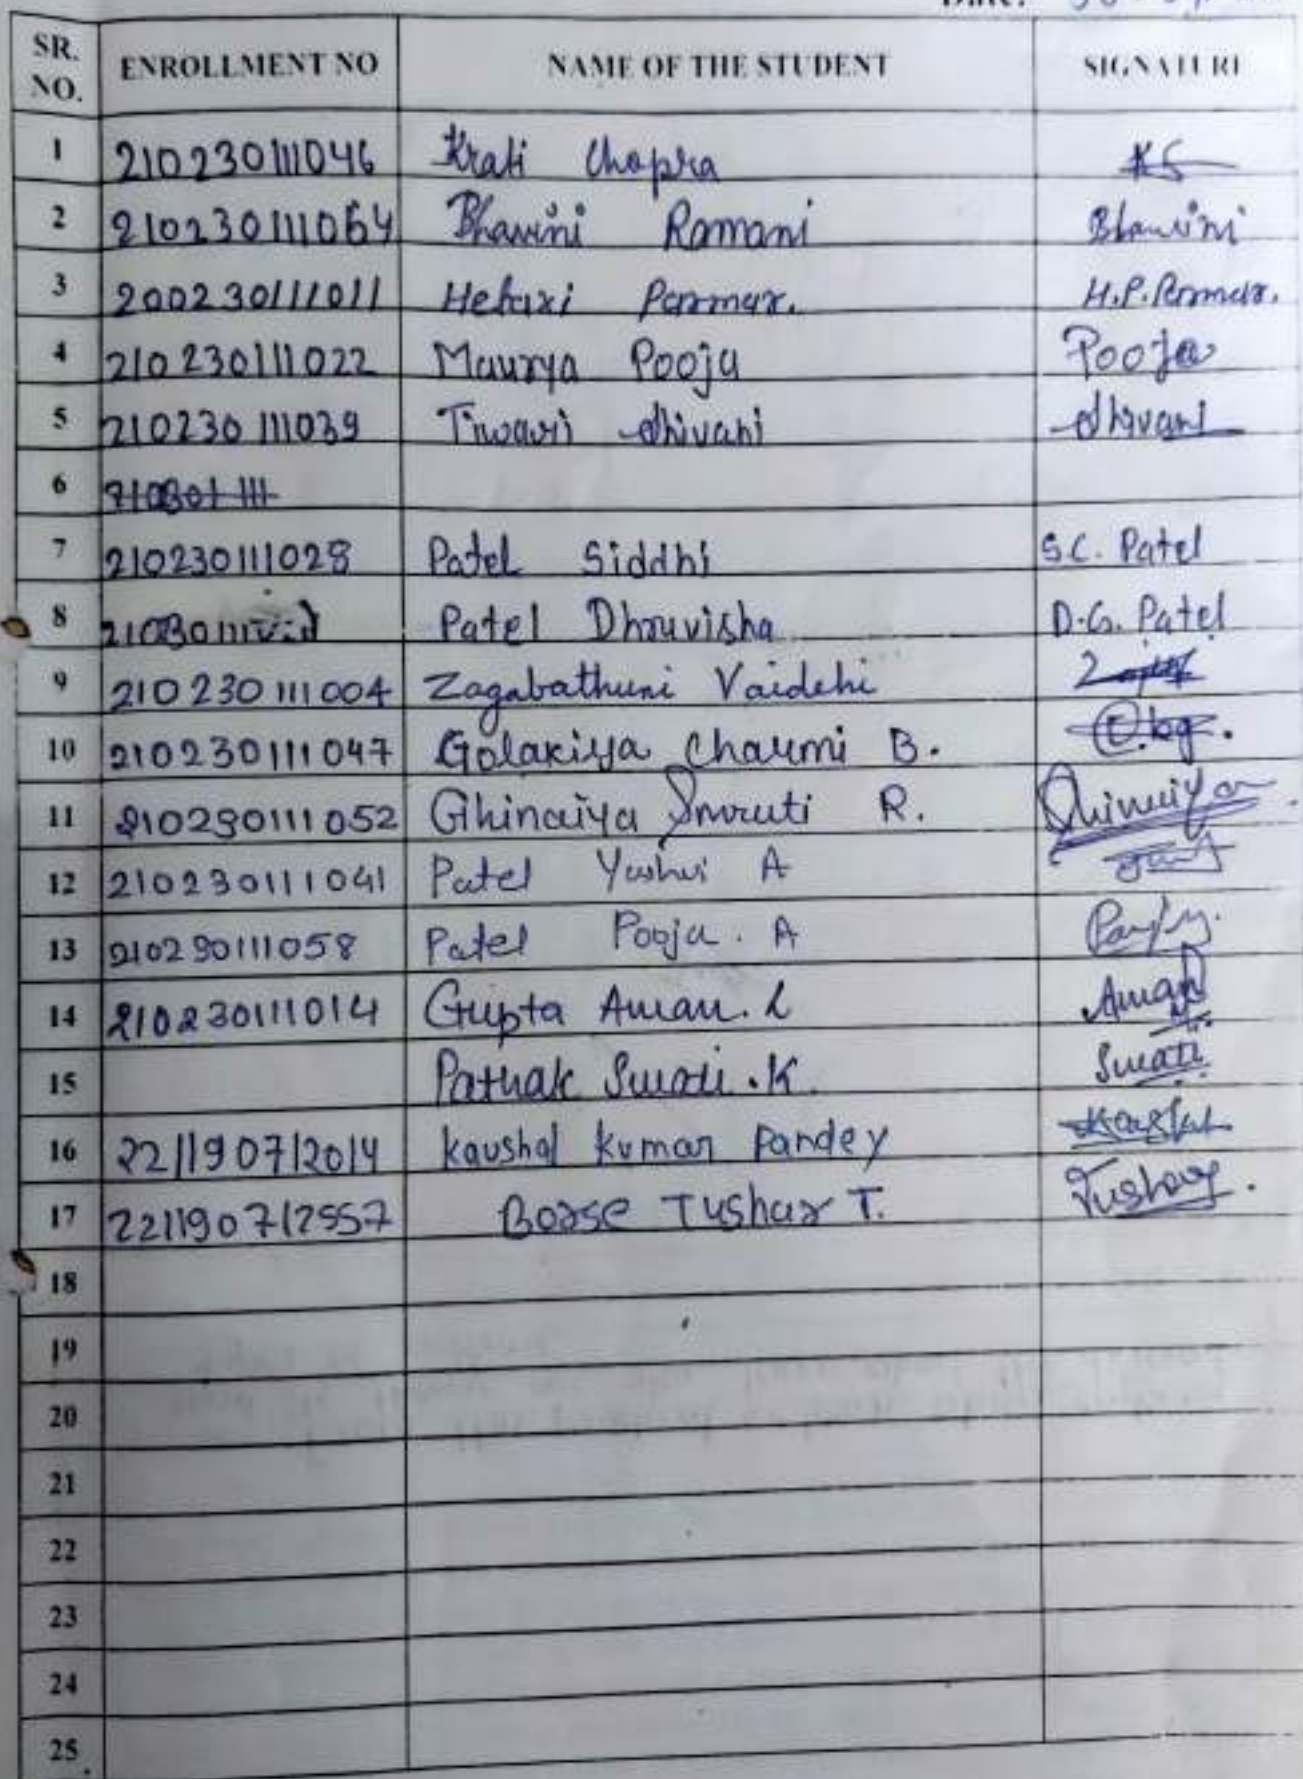 Date:
SR. NO. ENROLLMENT NO NAME OF THE STUDENT SIGNATURE
1 210230111046 Krati Chopra KS
2 210230111064 Bhavini Ramani Bhavini
3 200230111011 Hetaxi Parmar. H.P.Parmar.
4 210230111022 Maurya Pooja Pooja
5 210230111039 Tiwari Shivani Shivani
6
7 210230111028 Patel Siddhi S.C. Patel
8 Patel Dhruvisha D.G. Patel
9 210230111004 Zagabathuni Vaidehi
10 210230111047 Golakiya Charmi B.
11 210230111052 Ghinaiya Smruti R. Ghinaiya
12 210230111041 Patel Yashvi A
13 210230111058 Patel Pooja. A
14 210230111014 Gupta Aman. L Aman
15 Pathak Swati.K. Swati
16 221190712014 Kaushal Kumar Pandey Kaushal
17 221190712557 Borse Tushar T. Tushar.
18
19
20
21
22
23
24
25